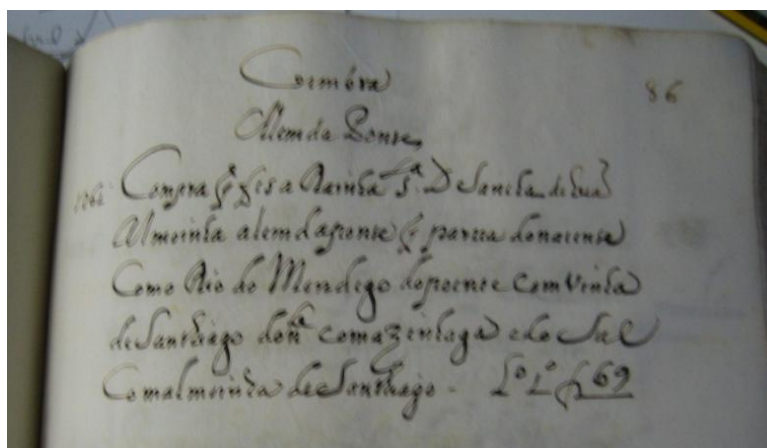 Coimbra
86
Alem da Ponte
Compra q̃ fes a Rainha S.ª D Sancha de hũa
Almoinha alem da ponte q̃ parte do nacente
Com o Rio do Mendego do poente Com vinha
de Santhiago do N.te com azinhaga e do Sul
Com almoinha de Santhiago - L.º 1.º f 69